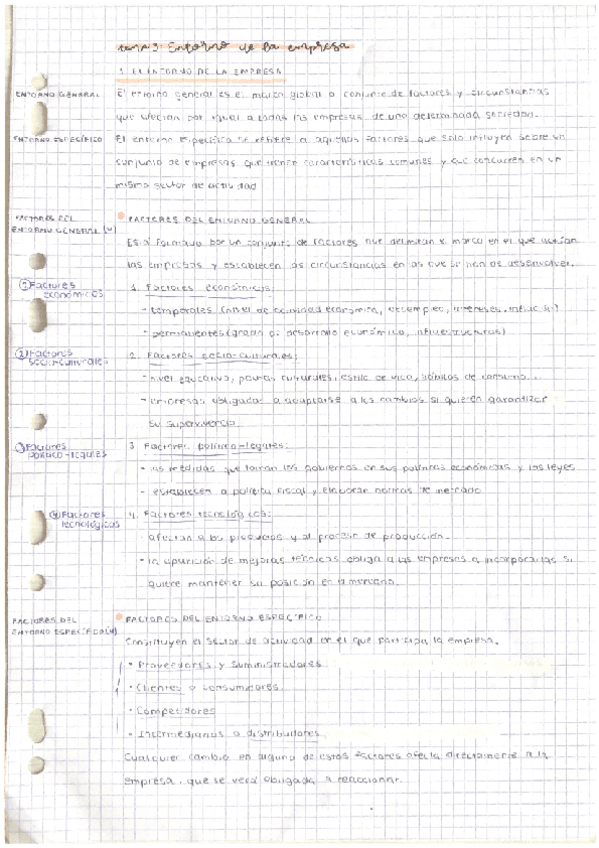 tema 3 Entorno de la empresa
1. El ENTORNO DE LA EMPRESA
ENTORNO GENERAL
El entorno general es el marco global o conjunto de factores y circunstancias
que afectan por igual a todas las empresas de una determinada sociedad.
ENTORNO ESPECÍFICO
El entorno específico se refiere a aquellos factores que solo influyen sobre un
conjunto de empresas que tienen características comunes y que concurren en un
mismo sector de actividad
FACTORES DEL
ENTORNO GENERAL (4)
FACTORES DEL ENTORNO GENERAL
Está formado por un conjunto de factores que delimitan el marco en el que actúan
las empresas y establecen las circunstancias en las que se han de desenvolver.
① Factores
económicos
1. Factores económicos:
- temporales (nivel de actividad económica, desempleo, intereses, inflación)
- permanentes (grado de desarrollo económico, infraestructuras)
② Factores
socio-culturales
2. Factores socio-culturales:
- nivel educativo, pautas culturales, estilo de vida, hábitos de consumo...
- empresas obligadas a adaptarse a los cambios si quieren garantizar
su supervivencia
③ Factores
político-legales
3. Factores político-legales:
- las medidas que toman los gobiernos en sus políticas económicas y las leyes
- establecen la política fiscal y elaboran normas de mercado
④ Factores
tecnológicos
4. Factores tecnológicos:
- afectan a los productos y al proceso de producción.
- la aparición de mejoras técnicas obliga a las empresas a incorporarlas si
quiere mantener su posición en el mercado.
FACTORES DEL
ENTORNO ESPECÍFICO (4)
FACTORES DEL ENTORNO ESPECÍFICO
Constituyen el sector de actividad en el que participa la empresa.
· Proveedores y suministradores
· Clientes o consumidores
· Competidores
· Intermediarios o distribuidores
Cualquier cambio en alguno de estos factores afecta directamente a la
empresa, que se verá obligada a reaccionar.